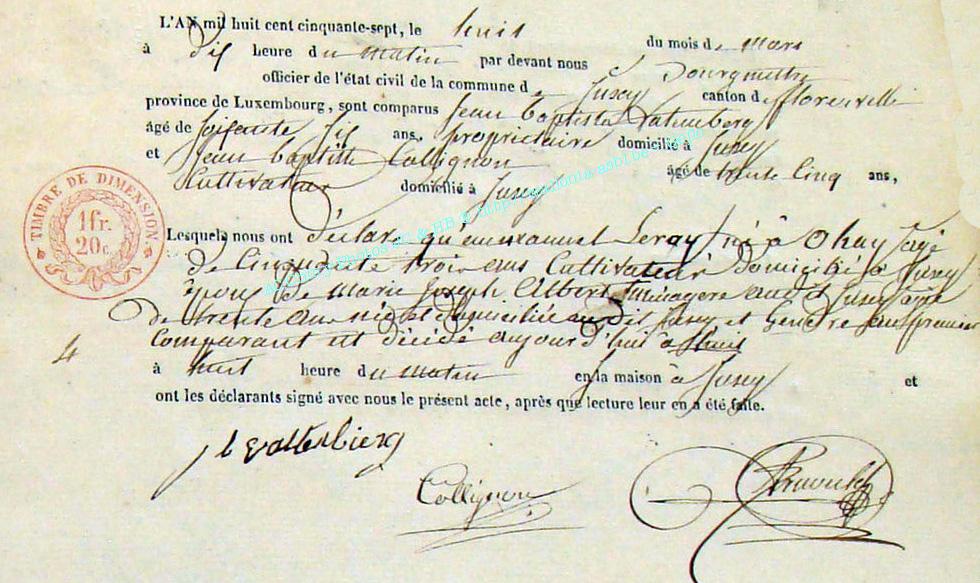 L'AN mil huit cent cinquante-sept, le huit du mois de Mars
à dix heure du matin par devant nous Bourgmettre
officier de l'état civil de la commune de Jusey canton de florenville
province de Luxembourg, sont comparus Jean baptiste Vatenberg
âgé de soixante ans, propriétaire domicilié à Jusey
et Jean baptiste Collignon âgé de trente cinq ans,
Cultivateur domicilié à Jusey
TIMBRE DE DIMENSION.
1 fr.
20 c.
Lesquels nous ont déclaré qu'emmanuel Leray né à Ohay agé
de cinquante trois ans Cultivateur domicilié à Jusey
Epoux de marie Joseph Albert Ménagere audit Jusey agée
de trente ans née et domiciliée au dit Jusey et gendre au premier
4
Comparant est décédé aujourd'hui à
à huit heure du matin en la maison à Jusey et
ont les déclarants signé avec nous le présent acte, après que lecture leur en a été faite.
Collignon